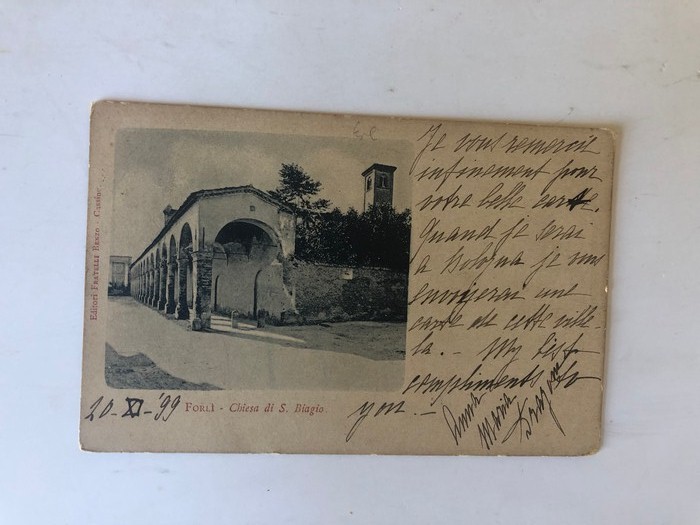 Je vous remercie
infiniment pour
votre belle carte.
Quand je serai
a Bologna je vous
enverrai une
carte de cette ville-
la. - My best
compliments to
you. -
Anna
Maria
20-XI-'99
FORLÌ - Chiesa di S. Biagio.
Editori FRATELLI